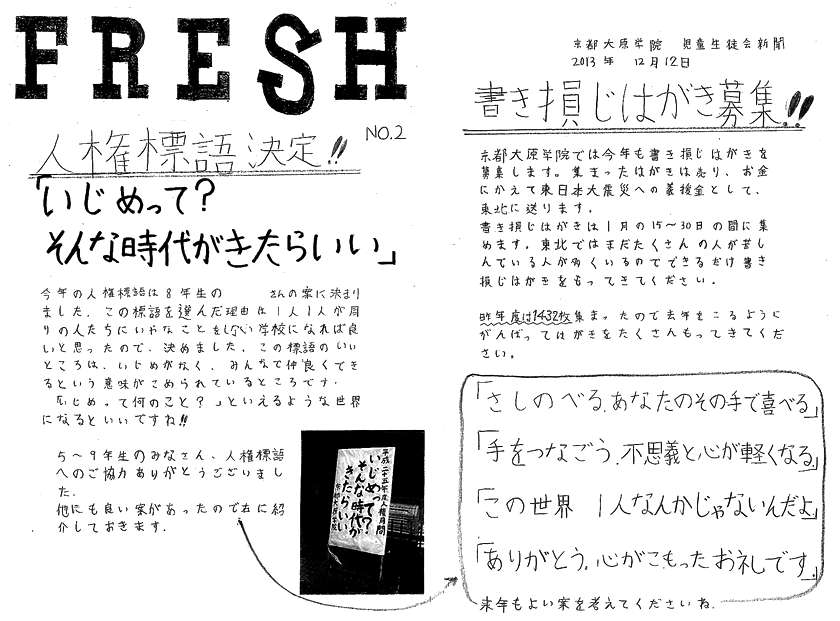 FRESH
NO.2
人権標語決定!!
「いじめって?
そんな時代がきたらいい」
今年の人権標語は8年生の　　　さんの案に決まり
ました。この標語を選んだ理由は1人1人が周
りの人たちにいやなことをしない学校になれば良
いと思ったので、決めました。この標語のいい
ところは、いじめがなく、みんなで仲良くでき
るという意味がこめられているところです。
「いじめって何のこと?」といえるような世界
になるといいですね!!
5〜9年生のみなさん、人権標語
へのご協力ありがとうございまし
た。
他にも良い案があったので右に紹
介しておきます。
平成二十五年度人権月間
いじめって?
そんな時代が
きたらいい
京都大原学院
京都大原学院　児童生徒会新聞
2013年　12月12日
書き損じはがき募集!!
京都大原学院では今年も書き損じはがきを
募集します。集まったはがきは売り、お金
にかえて東日本大震災への義援金として、
東北に送ります。
書き損じはがきは1月の15〜30日の間に集
めます。東北ではまだたくさんの人が苦し
んでいる人が多くいるのでできるだけ書き
損じはがきをもってきてください。
昨年度は1432枚集まったので去年をこるように
がんばってはがきをたくさんもってきてくだ
さい。
「さしのべる、あなたのその手で喜べる」
「手をつなごう、不思議と心が軽くなる」
「この世界　1人なんかじゃないんだよ」
「ありがとう、心がこもったお礼です」
来年もよい案を考えてくださいね。